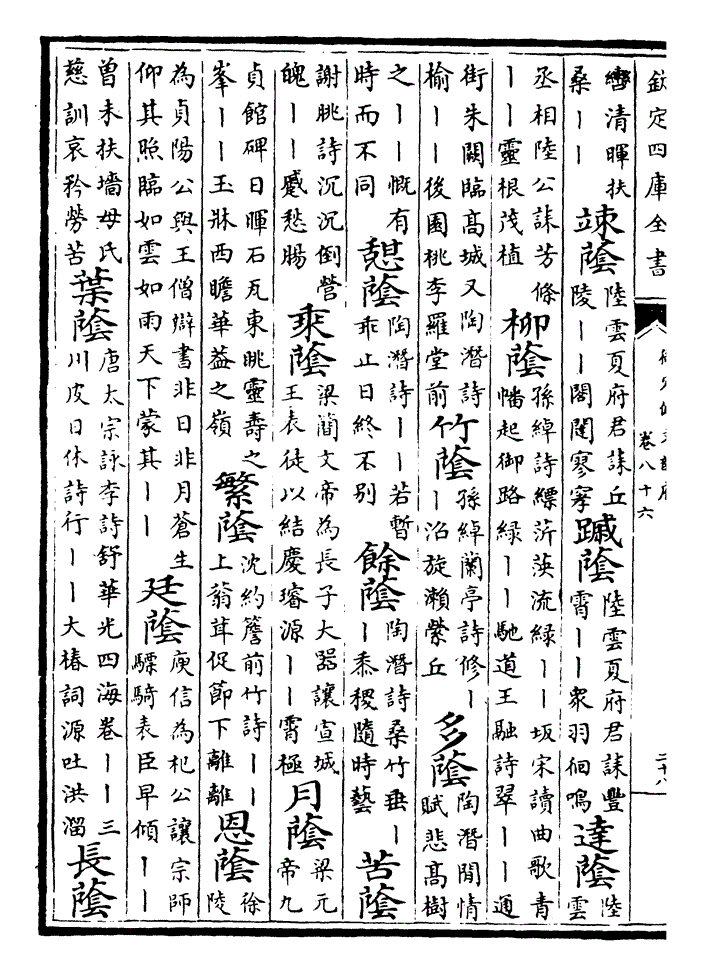 欽定四庫全書
御定佩文韻府
卷八十六
二十八
轡清暉扶
桑丨丨
竦蔭
陸雲夏府君誄丘
陵丨丨閤闥寥寥
蔭
陸雲夏府君誄豐
霄丨丨衆羽徊鳴
達蔭
陸
雲
丞相陸公誄芳條
丨丨靈根茂植
柳蔭
孫綽詩縹流綠丨丨坂宋讀曲歌青
幡起御路綠丨丨馳道王融詩翠丨丨通
街朱闕臨高城又陶潛詩
榆丨丨後園桃李羅堂前
竹蔭
孫綽蘭亭詩修丨
丨沿旋瀨縈丘
多蔭
陶潛閒情
賦悲高樹
之丨丨慨有
時而不同
憩蔭
陶潛詩丨丨若暫
乖止日終不別
餘蔭
陶潛詩桑竹垂丨
丨黍稷隨時藝
苦蔭
謝朓詩沉沉倒營
魄丨丨蹙愁腸
乘蔭
梁簡文帝為長子大器讓宣城
王表徒以結慶璿源丨丨霄極
月蔭
梁元
帝九
貞館碑日暉石瓦東眺靈壽之
峯丨丨玉牀西瞻華蓋之嶺
繁蔭
沈約簷前竹詩丨丨
上蓊茸促節下離離
恩蔭
徐
陵
為貞陽公與王僧辯書非日非月蒼生
仰其照臨如雲如雨天下蒙其丨丨
廷蔭
庾信為杞公讓宗師
驃騎表臣早傾丨丨
曾未扶墻母氏
慈訓哀矜勞苦
葉蔭
唐太宗詠李詩舒華光四海卷丨丨三
川皮日休詩行丨丨大椿詞源吐洪溜
長蔭